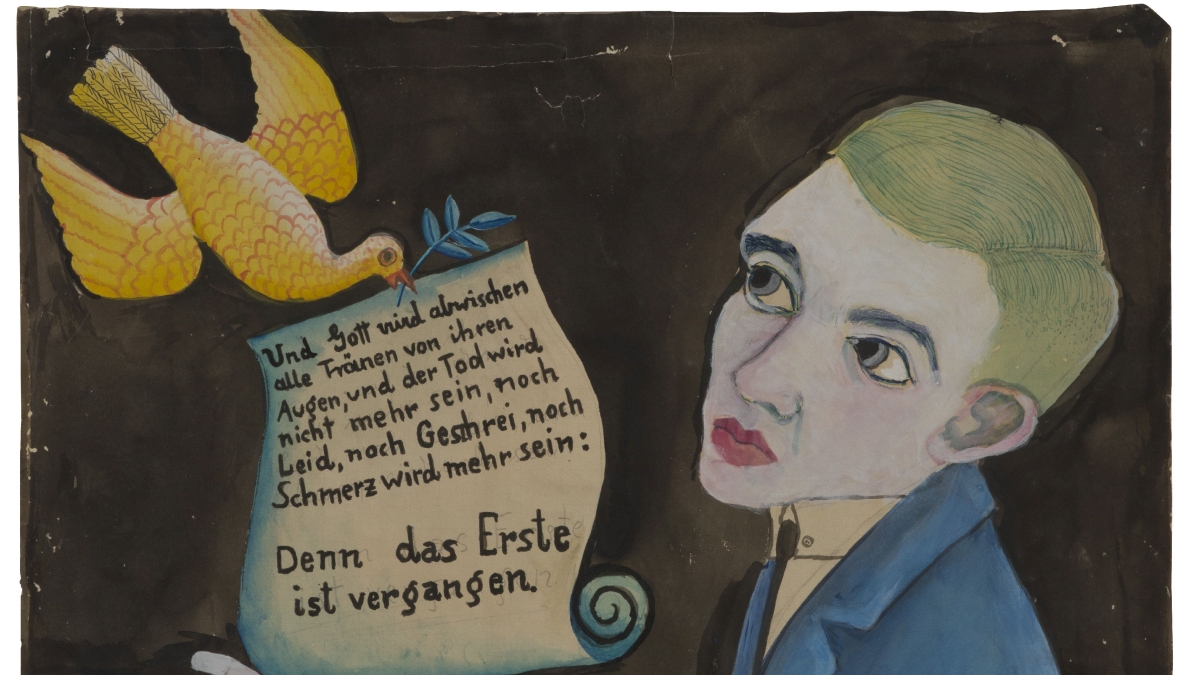 Und Gott wird abwischen
alle Tränen von ihren
Augen, und der Tod wird
nicht mehr sein, noch
Leid, noch Geschrei, noch
Schmerz wird mehr sein:
Denn das Erste
ist vergangen.